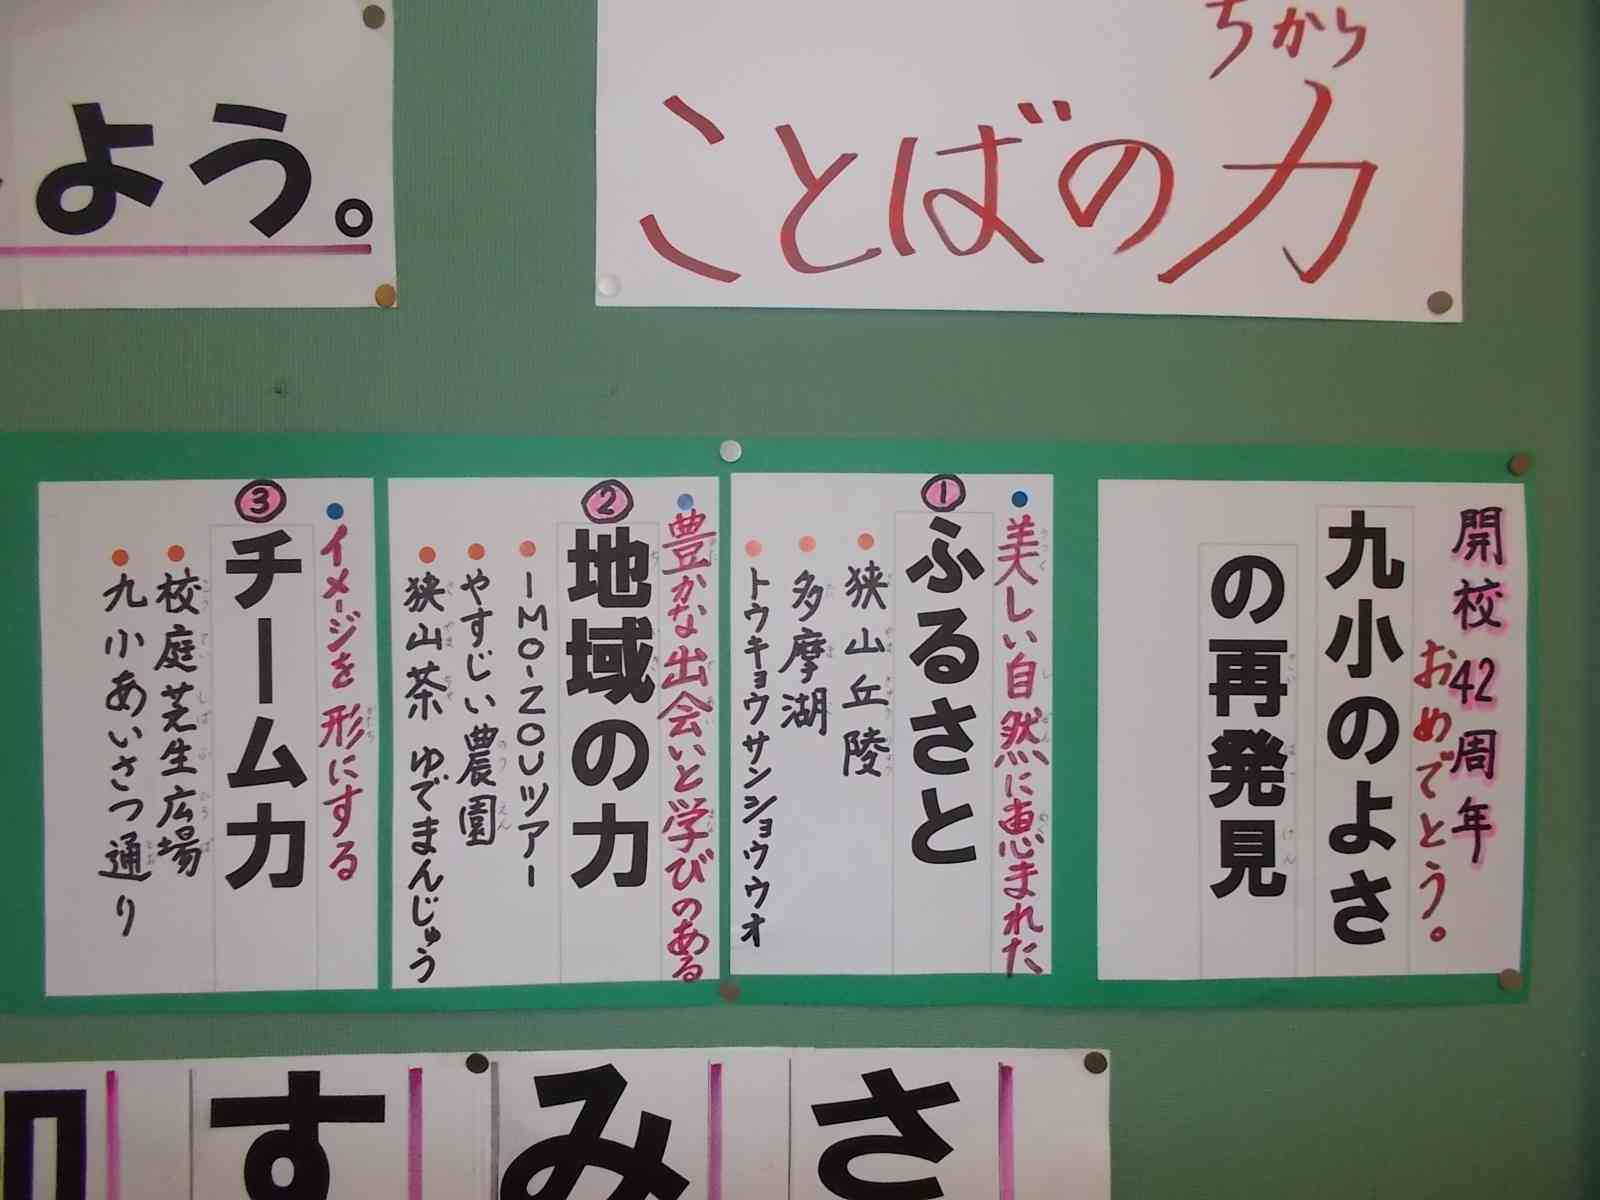 よう。
ちから
ことばの力
開校42周年
おめでとう。
九小のよさ
の再発見
美しい自然に恵まれた
①ふるさと
狭山丘陵
多摩湖
トウキョウサンショウウオ
豊かな出会いと学びのある
②地域の力
IMO-ZOUツアー
やすじい農園
狭山茶 ゆでまんじゅう
イメージを形にする
③チーム力
校庭芝生広場
九小あいさつ通り
さ
み
す